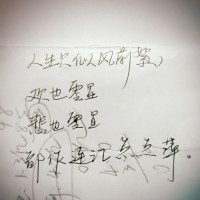 人生只似风前絮
欢也零星
悲也零星
都作连江点点萍